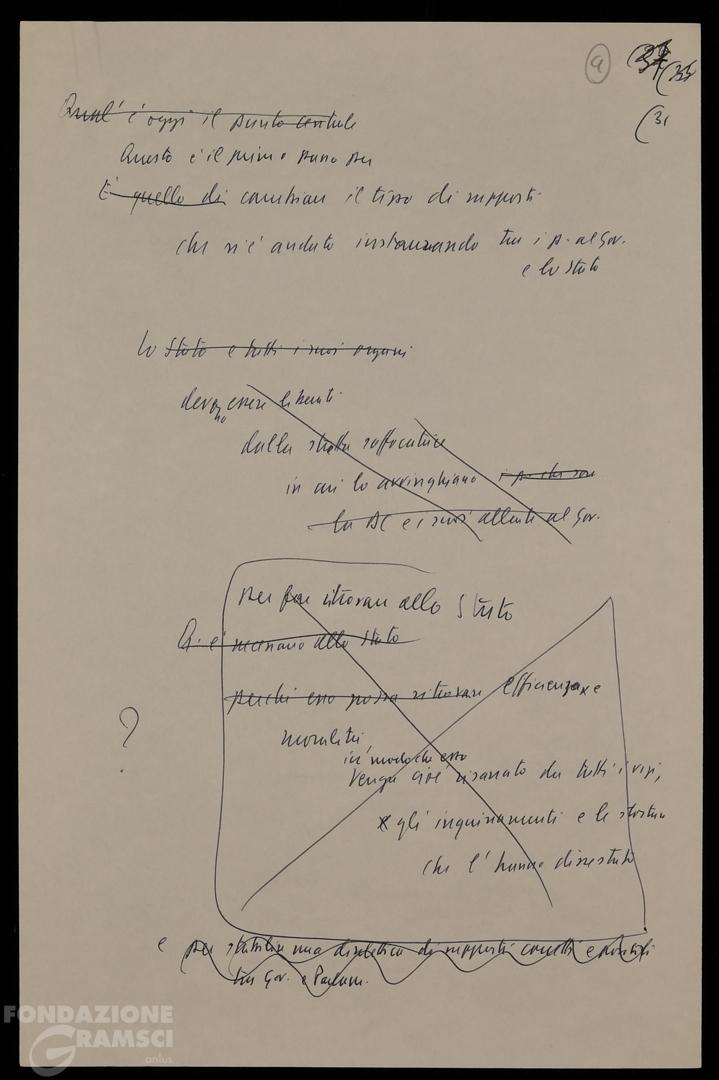 9
(34
(33
(31
Qual'è oggi il punto centrale
Questo è il primo passo per
È quello di cambiare il tipo di rapporti
che si è andato instaurando tra i p. al Gov.
e lo Stato
Lo Stato e tutti i suoi organi
devono essere liberati
dalla stretta soffocatrice
in cui lo avvinghiano i p. che sono
la DC e i suoi alleati al Gov.
per far ritrovare allo Stato
Ciò è necessario allo Stato
perché esso possa ritrovare efficienza e
moralità,
in modo che esso
venga cioè risanato da tutti i vizi,
gli inquinamenti e le storture
che l'hanno dissestato
?
e per stabilire una dialettica di rapporti corretti e positivi
tra Gov. e Parlam.
FONDAZIONE
GRAMSCI
onlus